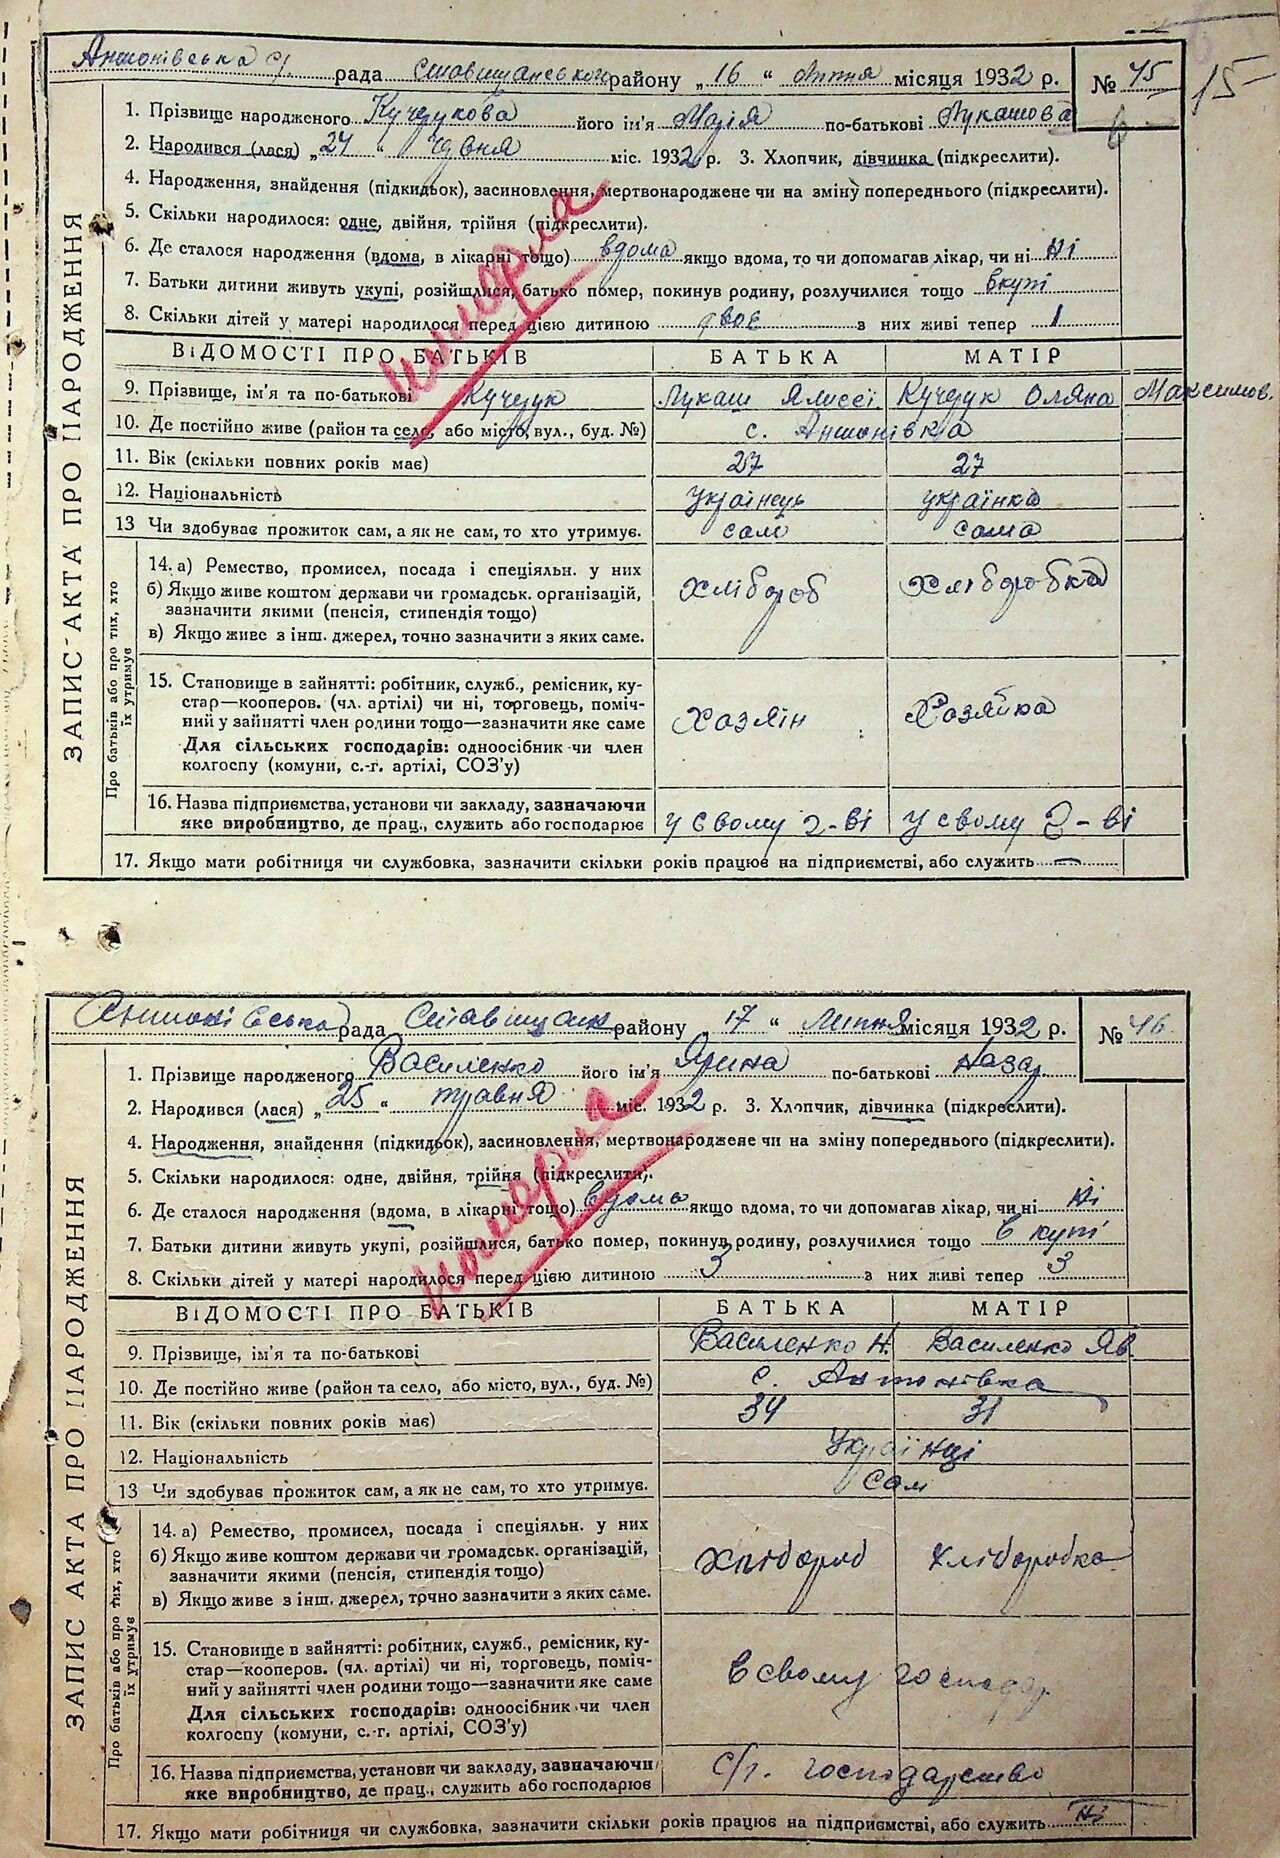 Антонівська с/. рада Ставищанського району „ 16 “ липня місяця 1932 р. № 45
15
1. Прізвище народженого Кучерукова його ім'я Марія по-батькові Лукашова
2. Народився (лася) „ 24 “ червня міс. 1932 р. 3. Хлопчик, дівчинка (підкреслити).
4. Народження, знайдення (підкидьок), засиновлення, мертвонароджене чи на зміну попереднього (підкреслити).
5. Скільки народилося: одне, двійня, трійня (підкреслити).
6. Де сталося народження (вдома, в лікарні тощо) вдома якщо вдома, то чи допомагав лікар, чи ні ні
7. Батьки дитини живуть укупі, розійшлися, батько помер, покинув родину, розлучилися тощо вкупі
8. Скільки дітей у матері народилося перед цією дитиною двоє з них живі тепер 1
померла
ЗАПИС АКТА ПРО НАРОДЖЕННЯ
ВІДОМОСТІ ПРО БАТЬКІВ БАТЬКА МАТІР
9. Прізвище, ім'я та по-батькові Кучерук Лукаш Єлисеї. Кучерук Оляна Максимов.
10. Де постійно живе (район та село, або місто, вул., буд. №) с. Антонівка
11. Вік (скільки повних років має) 27 27
12. Національність українець українка
13 Чи здобуває прожиток сам, а як не сам, то хто утримує. сам сама
Про батьків або про тих, хто їх утримує
14. а) Ремество, промисел, посада і спеціяльн. у них
б) Якщо живе коштом держави чи громадськ. організацій, зазначити якими (пенсія, стипендія тощо)
в) Якщо живе з інш. джерел, точно зазначити з яких саме.
хлібороб хліборобка
15. Становище в зайнятті: робітник, служб., ремісник, ку-
стар—кооперов. (чл. артілі) чи ні, торговець, поміч-
ний у зайнятті член родини тощо—зазначити яке саме
Для сільських господарів: одноосібник чи член
колгоспу (комуни, с.-г. артілі, СОЗ'у)
Хазяїн Хазяйка
16. Назва підприємства, установи чи закладу, зазначаючи
яке виробництво, де прац., служить або господарює у свому г-ві у свому г-ві
17. Якщо мати робітниця чи службовка, зазначити скільки років працює на підприємстві, або служить —
Антонівська рада Ставищанськ району „ 17 “ липня місяця 1932 р. № 46
1. Прізвище народженого Василенко його ім'я Ярина по-батькові Назар
2. Народився (лася) „ 25 “ травня міс. 1932 р. 3. Хлопчик, дівчинка (підкреслити).
4. Народження, знайдення (підкидьок), засиновлення, мертвонароджене чи на зміну попереднього (підкреслити).
5. Скільки народилося: одне, двійня, трійня (підкреслити).
6. Де сталося народження (вдома, в лікарні тощо) вдома якщо вдома, то чи допомагав лікар, чи ні ні
7. Батьки дитини живуть укупі, розійшлися, батько помер, покинув родину, розлучилися тощо в купі
8. Скільки дітей у матері народилося перед цією дитиною 3 з них живі тепер 3
померла
ЗАПИС АКТА ПРО НАРОДЖЕННЯ
ВІДОМОСТІ ПРО БАТЬКІВ БАТЬКА МАТІР
9. Прізвище, ім'я та по-батькові Василенко Н. Василенко Яв.
10. Де постійно живе (район та село, або місто, вул., буд. №) с. Антонівка
11. Вік (скільки повних років має) 34 31
12. Національність Українці
13 Чи здобуває прожиток сам, а як не сам, то хто утримує. Сам
Про батьків або про тих, хто їх утримує
14. а) Ремество, промисел, посада і спеціяльн. у них
б) Якщо живе коштом держави чи громадськ. організацій, зазначити якими (пенсія, стипендія тощо)
в) Якщо живе з інш. джерел, точно зазначити з яких саме.
хлібороб хліборобка
15. Становище в зайнятті: робітник, служб., ремісник, ку-
стар—кооперов. (чл. артілі) чи ні, торговець, поміч-
ний у зайнятті член родини тощо—зазначити яке саме
Для сільських господарів: одноосібник чи член
колгоспу (комуни, с.-г. артілі, СОЗ'у)
в свому господар
16. Назва підприємства, установи чи закладу, зазначаючи
яке виробництво, де прац., служить або господарює с/г. господарство
17. Якщо мати робітниця чи службовка, зазначити скільки років працює на підприємстві, або служить ні